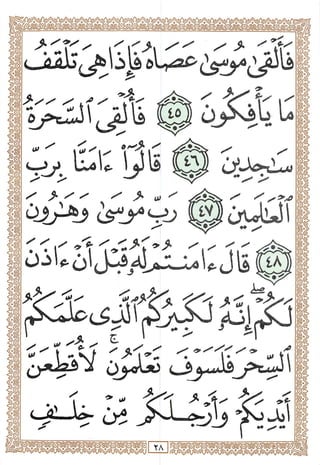 فَأَلۡقَىٰ مُوسَىٰ عَصَاهُ فَإِذَا هِىَ تَلۡقَفُ
مَا يَأۡفِكُونَ ٤٥ فَأُلۡقِىَ ٱلسَّحَرَةُ
سَـٰجِدِينَ ٤٦ قَالُوٓا۟ ءَامَنَّا بِرَبِّ
ٱلۡعَـٰلَمِينَ ٤٧ رَبِّ مُوسَىٰ وَهَـٰرُونَ
٤٨ قَالَ ءَامَنتُمۡ لَهُۥ قَبۡلَ أَنۡ ءَاذَنَ
لَكُمۡۖ إِنَّهُۥ لَكَبِيرُكُمُ ٱلَّذِى عَلَّمَكُمُ
ٱلسِّحۡرَ فَلَسَوۡفَ تَعۡلَمُونَۚ لَأُقَطِّعَنَّ
أَيۡدِيَكُمۡ وَأَرۡجُلَكُم مِّنۡ خِلَـٰفٍ
٢٨